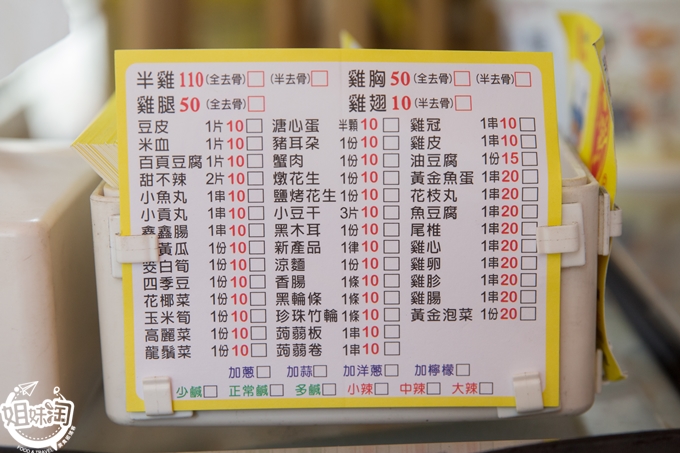 半雞110(全去骨)□ (半去骨)□ 雞胸50(全去骨)□ (半去骨)□
雞腿50(全去骨)□ 雞翅10(半去骨)□
豆皮 1片10□ 溏心蛋 半顆10□ 雞冠 1串10□
米血 1片10□ 豬耳朵 1份10□ 雞皮 1串10□
百頁豆腐 1片10□ 蟹肉 1份10□ 油豆腐 1份15□
甜不辣 2片10□ 燉花生 1份10□ 黃金魚蛋 1串20□
小魚丸 1串10□ 鹽烤花生 1份10□ 花枝丸 1串20□
小貢丸 1串10□ 小豆干 3片10□ 魚豆腐 1串20□
鑫鑫腸 1串10□ 黑木耳 1份10□ 尾椎 1串20□
黃瓜 1份10□ 新產品 1律10□ 雞心 1串20□
茭白筍 1份10□ 涼麵 1份10□ 雞卵 1串20□
四季豆 1份10□ 香腸 1條10□ 雞胗 1串20□
花椰菜 1份10□ 黑輪條 1條10□ 雞腸 1串20□
玉米筍 1份10□ 珍珠竹輪 1條10□ 黃金泡菜 1份20□
高麗菜 1份10□ 蒟蒻板 1串10□
龍鬚菜 1份10□ 蒟蒻卷 1串10□
加蔥□ 加蒜□ 加洋蔥□ 加檸檬□
少鹹□ 正常鹹□ 多鹹□ 小辣□ 中辣□ 大辣□
姐妹淘
FOOD & TRAVEL